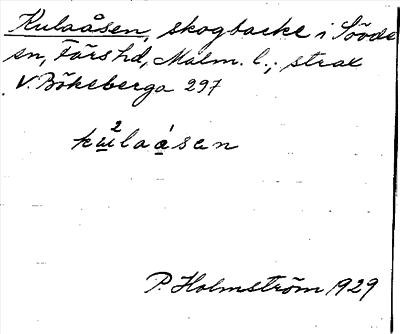 Kulaåsen, skogbacke i Sövde
sn, Färs hd, Malm. l.; strax
V. Bökeberga 297
kùlaásan
P. Holmström 1929